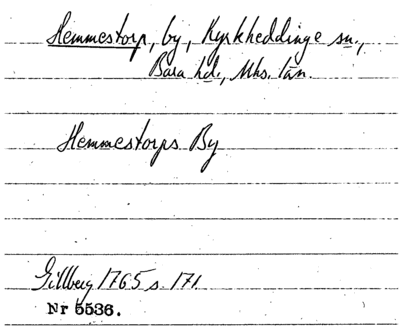 Hemmestorp, by, Kyrkheddinge sn.,
Bara hd., Mhs. län.
Hemmestorps By
Gillberg 1765 s. 171
Nr 5536.